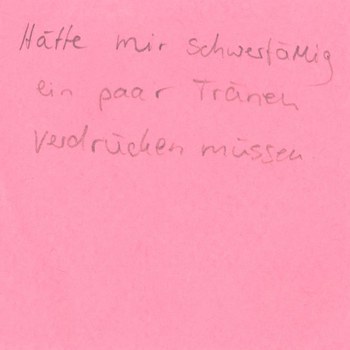 Hätte mir schwerfällig
ein paar Tränen
verdrücken müssen.